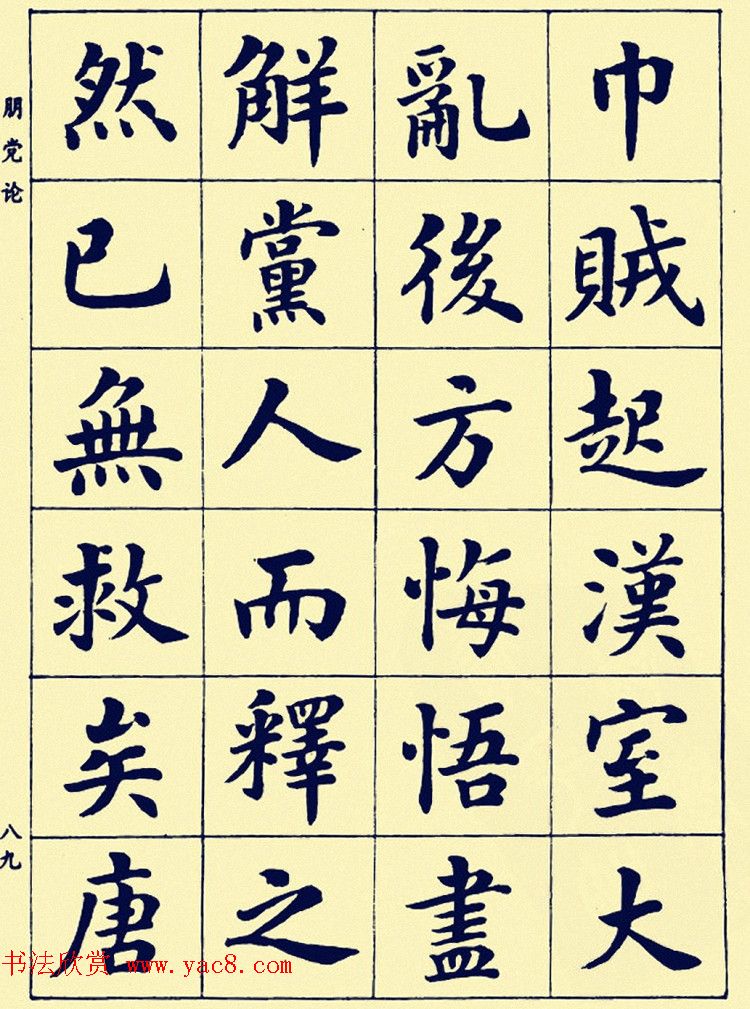 巾賊起漢室大
亂後方悔悟盡
解黨人而釋之
然已無救矣唐
朋党论
八九
书法欣赏 www.yac8.com